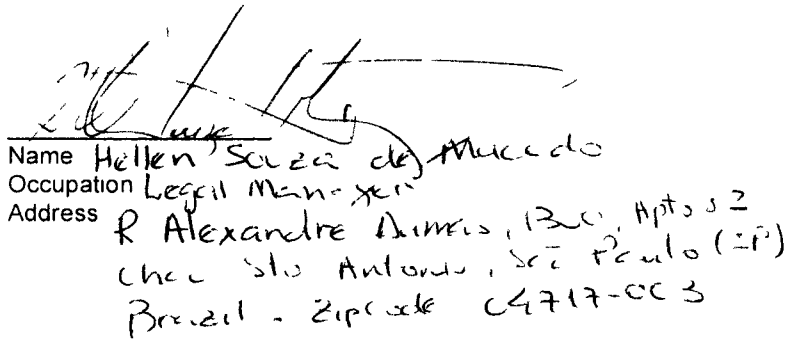 Name Hellen Souza de Macedo
Occupation Legal Manager
Address R Alexandre Dumas,
Antonio, São Paulo (SP)
Brazil - Zipcode 04717-003